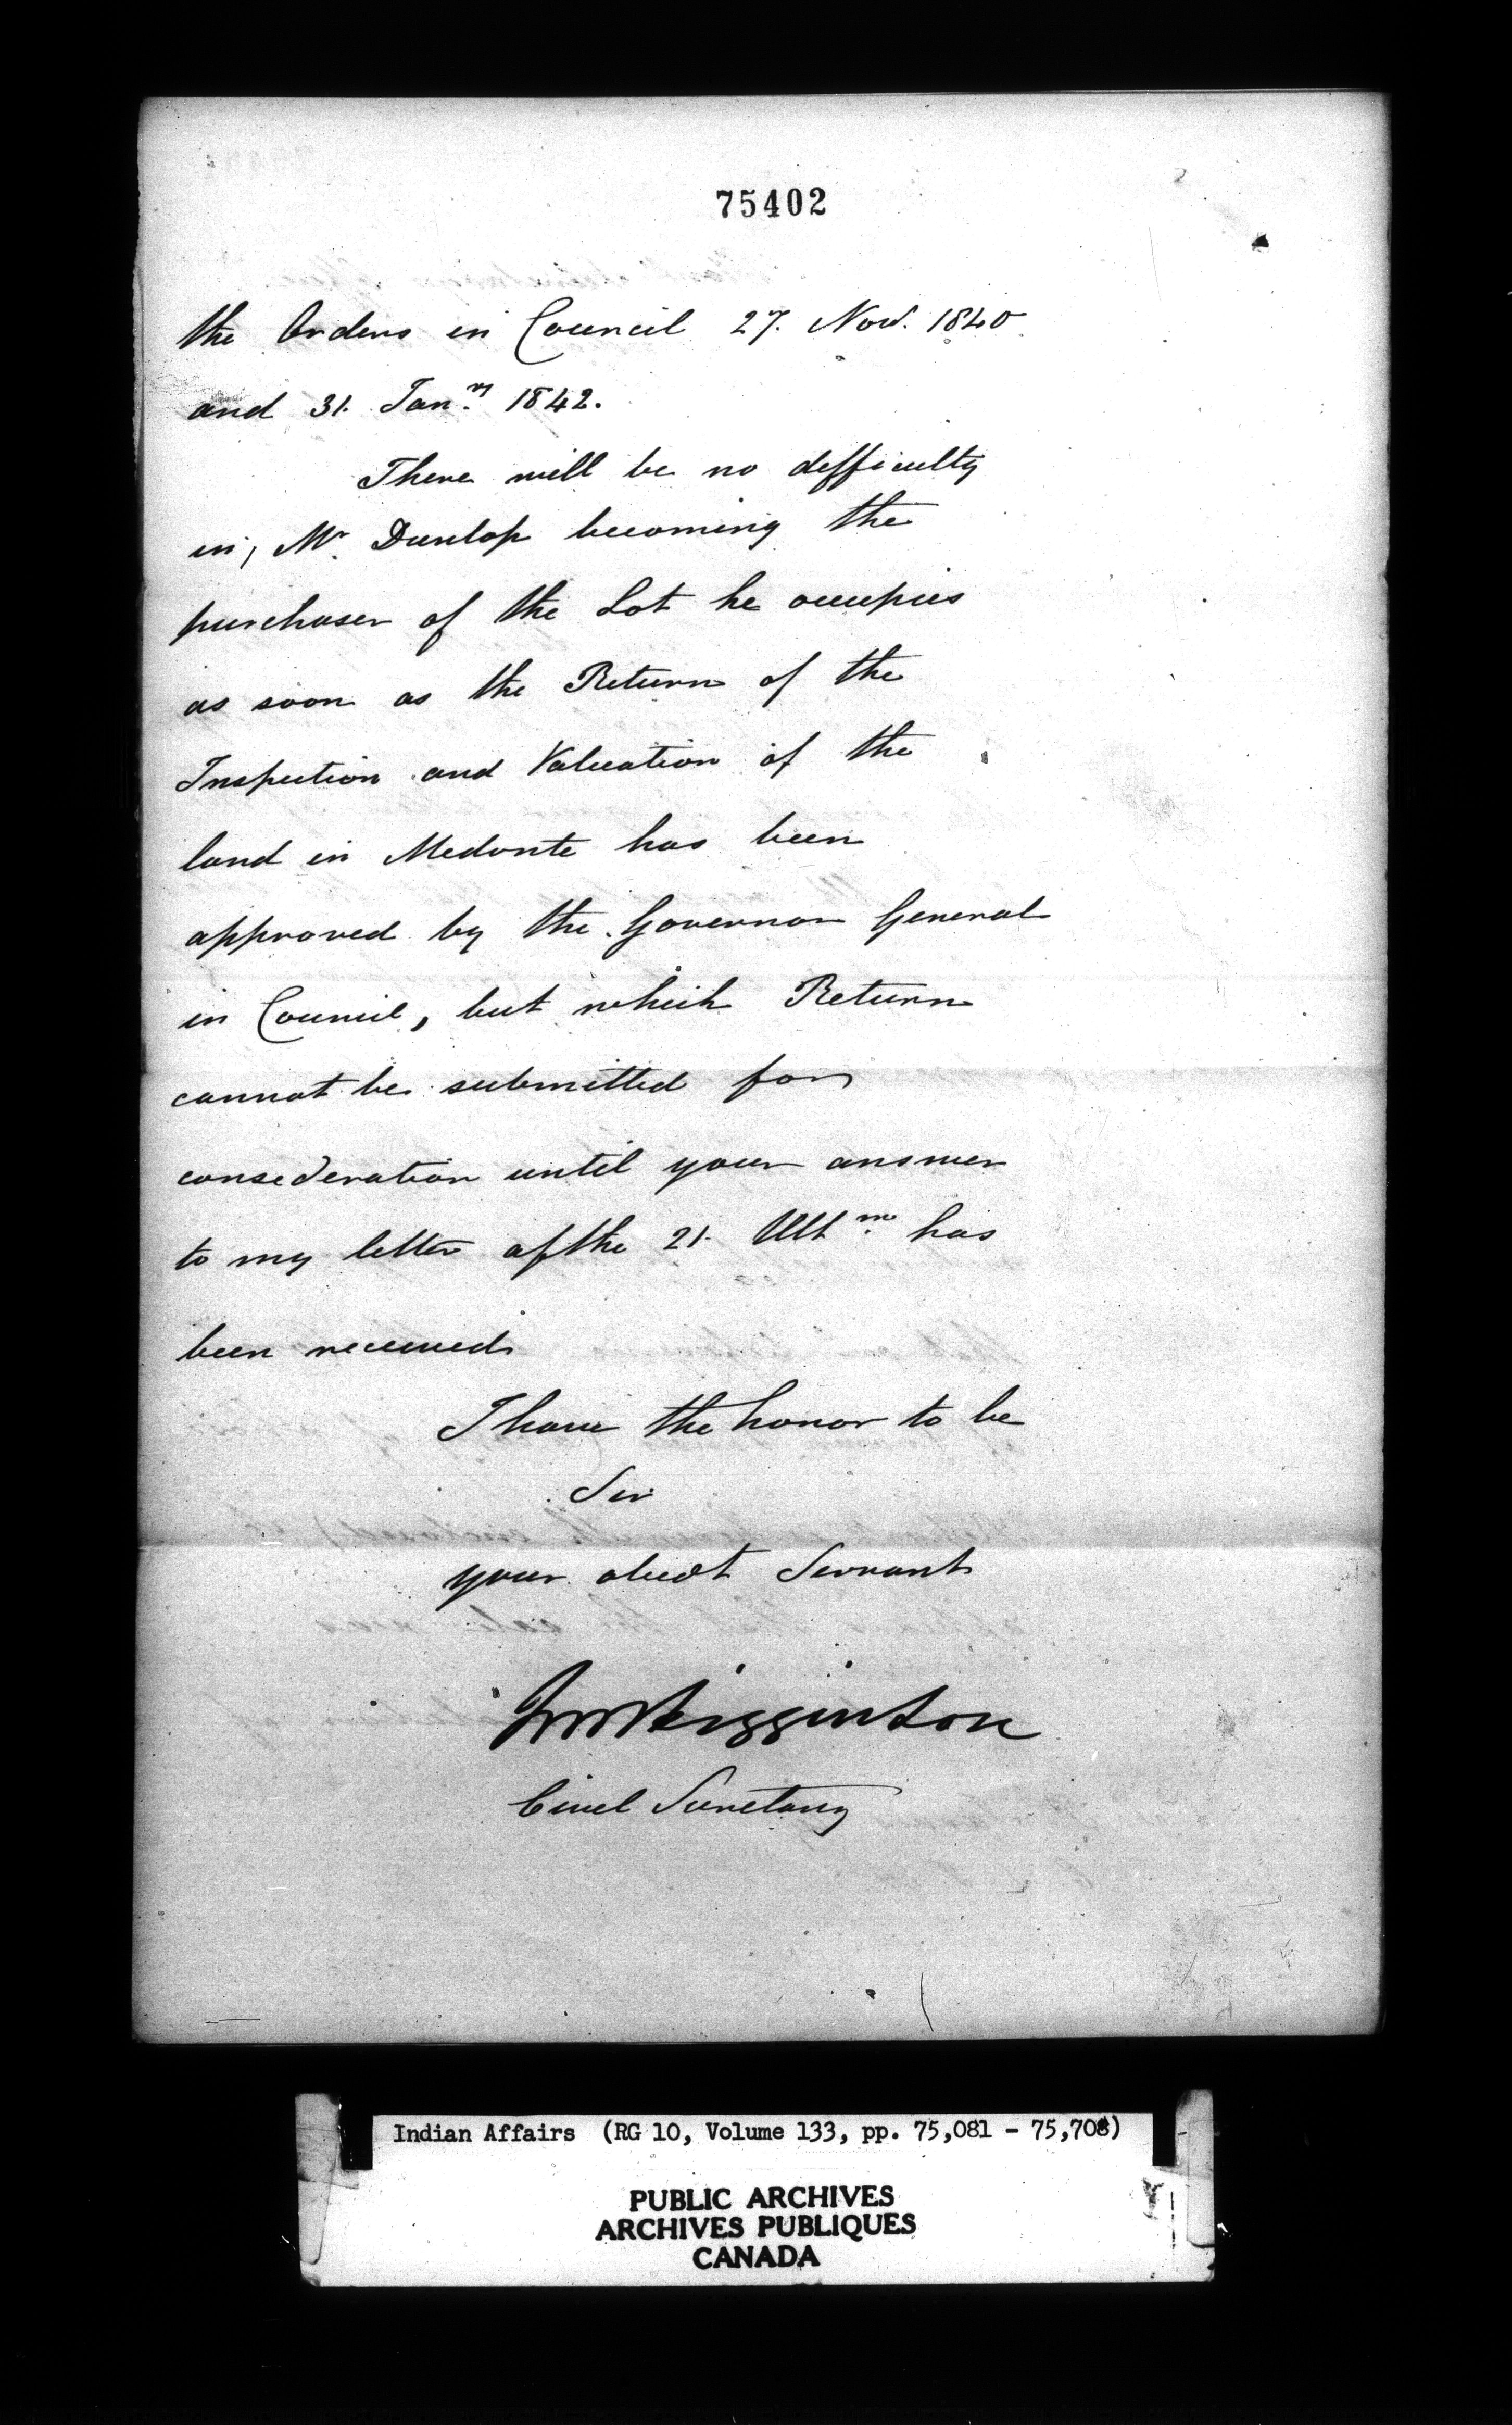 75402
the Orders in Council 27. Nov. 1840
and 31. Jan.ry 1842.
There will be no difficulty
in, Mr. Dunlop becoming the
purchaser of the Lot he occupies
as soon as the Return of the
Inspection and Valuation of the
land in Medonte has been
approved by the Governor General
in Council, but which Return
cannot be submitted for
consideration until your answer
to my letter of the 21. Ult.mo has
been received
I have the honor to be
Sir
your obedt Servant
JM Higginson
Civil Secretary
Indian Affairs (RG 10, Volume 133, pp. 75,081 - 75,708)
PUBLIC ARCHIVES
ARCHIVES PUBLIQUES
CANADA